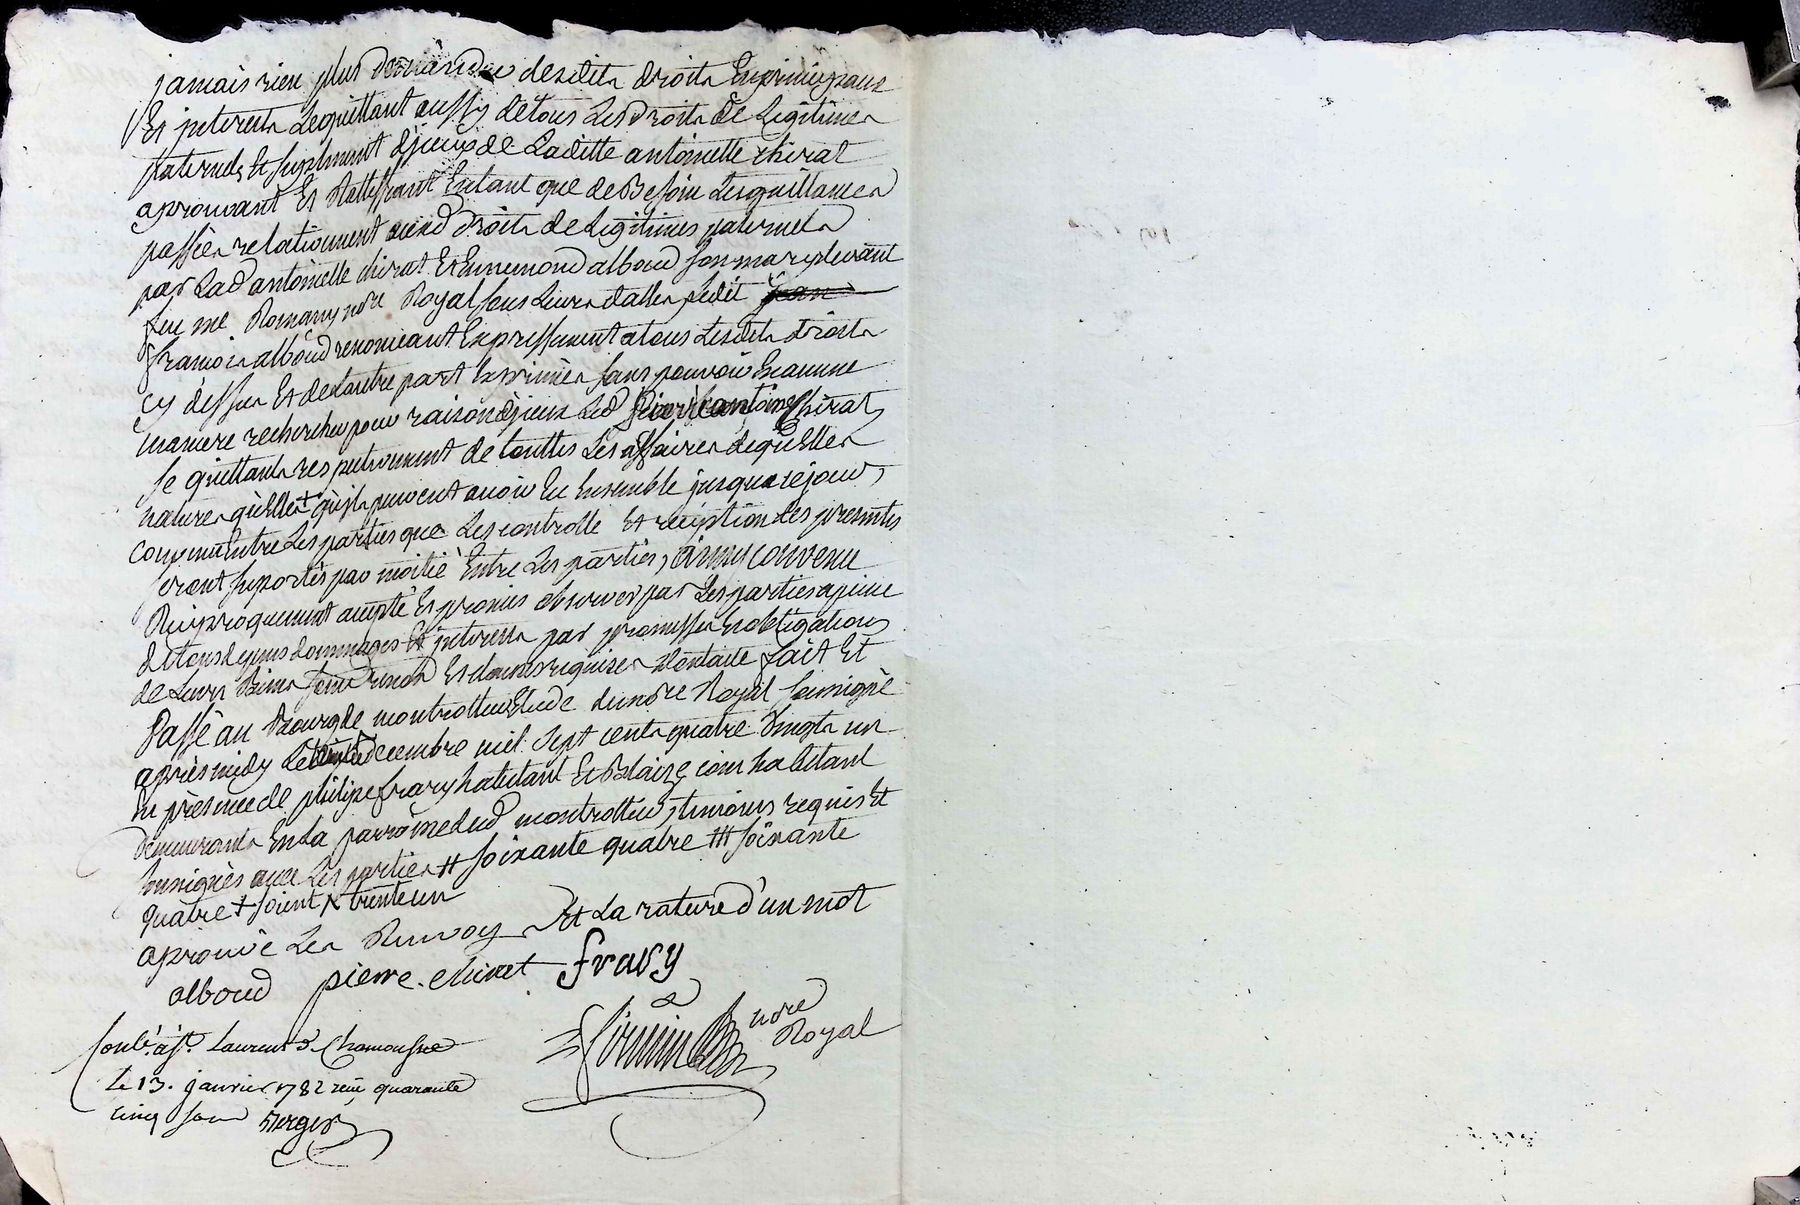 jamais rien plus demander desdits droits Exprimés par
Et interests Lequittant aussy detous Les Droits de Legitimes
paternels Et suplement d'jceux de Laditte antoinette chirat
aprouvant Et Rattiffiant Entant que de Besoin Lesquittances
passées relativement auxd droits de Legitimes paternels
par Lad antoinette chirat Et Ennemond alboud son mary devant
feu me Romany nore Royal sous Leurs dattes ledit Jean
francois alboud renonceant Expressement atous Lesdits droits
cy dessus Et delautre part Exprimés sans pouvoir Enaucune
maniere rechercher pour raison d'jceux Led pierre antoine Chirat
se quittants respectivement de touttes Les affaires dequelles
natures quelles + quils peuvent avoir Eu Ensemble jusqua cejour,
convenu Entre Les parties que Les controlle Et reception des presentes
seront suportés par moitié Entre Les parties, ainsy convenu
Reciproquement accepté Et promis observer par Les parties apeine
detous depens dommages Et interests par promesses obligations
de Leurs Biens Et clauses requises dontacte fait Et
Passé au Bourg de montrottier Etude dunore Royal soussigné
après midy Le decembre mil sept cents quatre Vingts un
En présence de philipe frary habitant Et Blaize habitant
Demeurants En La parroisse dud montrottier, temoins requis Et
soussignés avec Les parties # soixante quatre ## soixante
quatre + soient x trente un
aprouvé Les Renvoy Et La rature d'un mot
alboud pierre . chirat fravy
nore
Royal
Conlé. à St. Laurent d. Chamousset
Le 13. janvier 1782 reçu quarante
cinq sous Berger